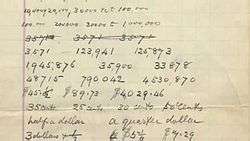 100 m
100 m 200000 3000 1,000,000
3571 3571 3571
3571 123,941 125,873
1,945,876 35,900 33,878
48715 790,042 4530,870
$45. $89.73 $4029.46
35 cents 25 cents 30 cents 50 cents
half a dollar a quarter dollar
3 dollars $5 $9.29